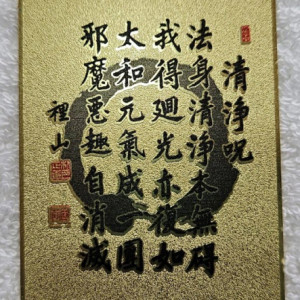 清淨呪
法身清淨本無碍
我得廻光亦復如
太和元氣成一圓
邪魔悪趣自消滅
裡山